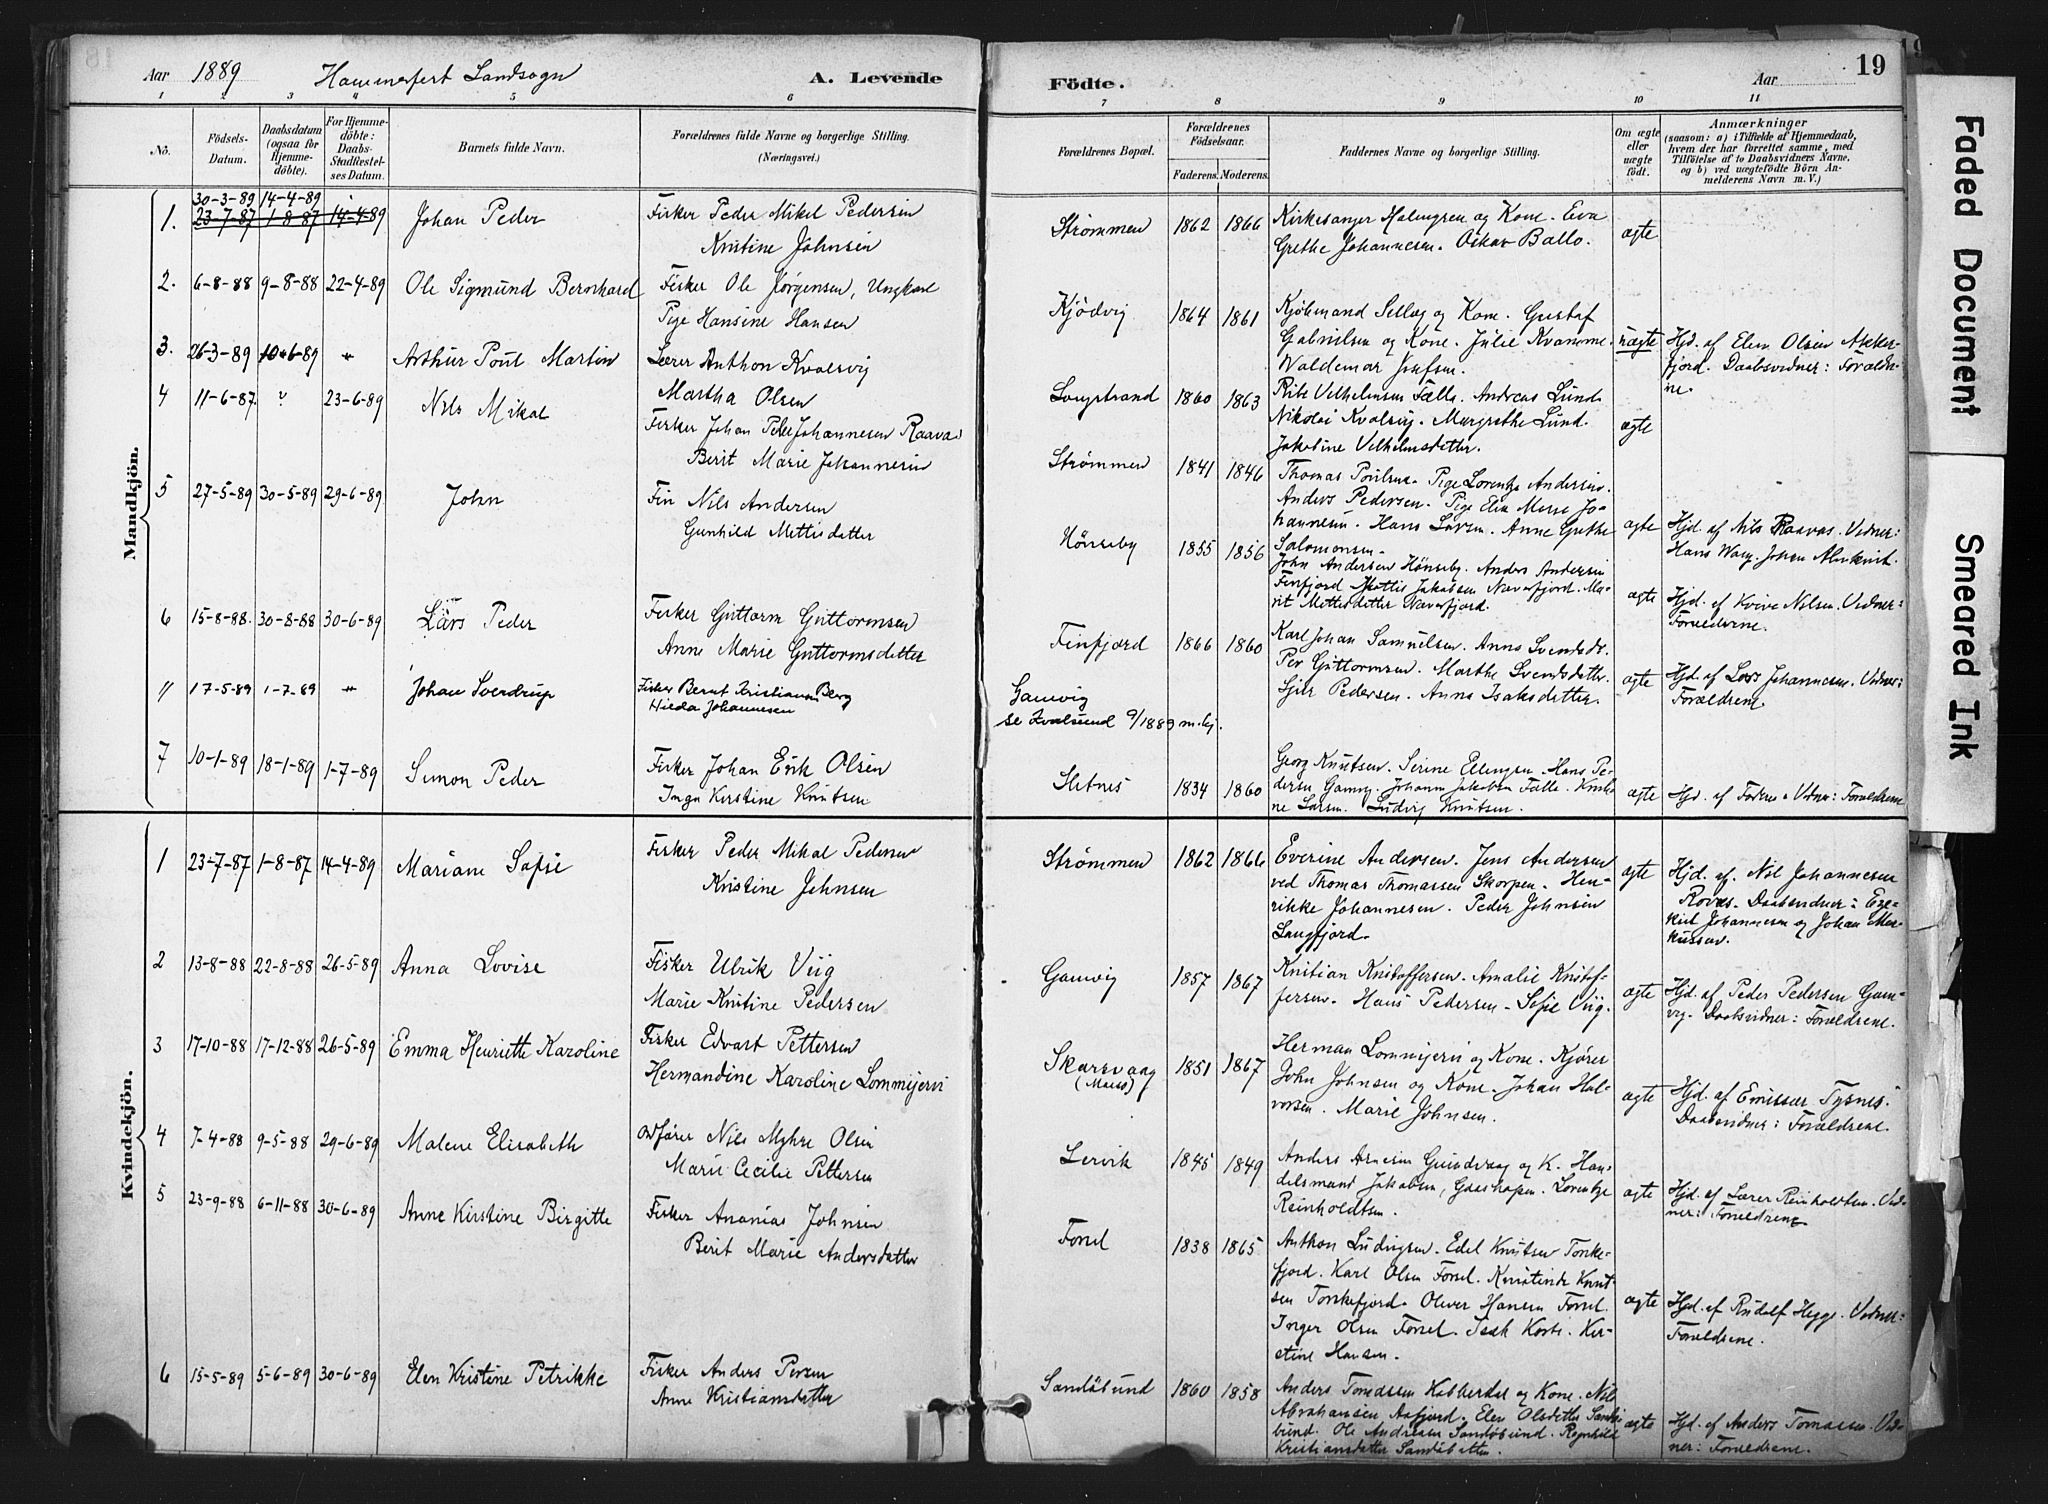 Aar 1889 Hammerfest Landsogn A. Levende
1 2 3 4 5 6
No.
Födsels-
Datum.
Daabsdatum
(ogsaa for
Hjemme-
döbte).
For Hjemme-
döbte:
Daabs-
Stadfæstel-
ses Datum.
Barnets fulde Navn.
Forældrenes fulde Navne og borgerlige Stilling.
(Næringsvei.)
Mandkjön.
30-3-89 14-4-89
1. 23-7-87 1-8-87 14-4-89 Johan Peder Fisker Peder Mikel Pedersen
Kristine Johnsen
2. 6-8-88 9-8-88 22-4-89 Ole Sigmund Bernhard Fisker Ole Jørgensen, Ungkarl
Pige Hansine Hansen
3. 26-3-89 10-6-89 " Arthur Poul Martin Lærer Anthon Kvalsvig
Martha Olsen
4 11-6-87. ? 23-6-89 Nils Mikal
Fisker Johan Peder Johannesen Raavas
Berit Marie Johannesen
5 27-5-89 30-5-89 29-6-89 John Fin Nils Andersen
Gunhild Mettisdatter
6 15-8-88. 30-8-88 30-6-89 Lars Peder Fisker Guttorm Guttormsen
Anne Marie Guttormsdatter
" 17-5-89 1-7-89 " Johan Sverdrup Fisker Bernt Kristiansen Berg
Hilda Johannesen
7 10-1-89 18-1-89 1-7-89 Simon Peder Fisker Johan Erik Olsen
Inga Kirstine Knutsen
Kvindekjön.
1 23-7-87 1-8-87 14-4-89 Mariane Sofie Fisker Peder Mikal Pedersen
Kristine Johnsen
2 13-8-88 22-8-88 26-5-89 Anna Lovise Fisker Ulrik Viig
Marie Kristine Pedersen
3 17-10-88 17-12-88 26-5-89 Emma Henriette Karoline Fisker Edvart Pettersen
Hermandine Karoline Lommijervi
4 7-4-88 9-5-88 29-6-89 Malene Elisabeth Ordfører Nils Myhre Olsen
Marie Cecilie Pettersen
5 23-9-88 6-11-88 30-6-89 Anne Kirstine Birgitte Fisker Ananias Johnsen
Berit Marie Andersdatter
6 15-5-89 5-6-89 30-6-89 Elen Kristine Petrikke Fisker Anders Persen
Anne Kristiansdatter
Födte. Aar 19
7 8 9 10 11
Forældrenes Bopæl.
Forældrenes
Födselsaar.
Faderens. Moderens.
Faddernes Navne og borgerlige Stilling.
Om ægte
eller
uægte
födt.
Anmærkninger
(saasom: a) i Tilfælde af Hjemmedaab,
hvem der har forrettet samme, med
Tilföielse af to Daabsvidners Navne,
og b) ved uægtefödte Börn An-
melderens Navn m. V.)
Strømmen 1862 1866 Kirkesanger Holmgren og Kone. Eva
Grethe Johannesen. Oskar Ballo. ægte
Kjødvig 1864 1861 Kjøbmand Selleg og Kone. Gustaf
Gabrielsen og Kone. Julie Kvamme.
Waldemar Josefsen.
uægte Hjd. af Elen Olsen Akker-
fjord. Daabsvidner: Forældre-
ne.
Langstrand 1860 1863 Vilhelmsen Fælle. Andreas Lund.
Nikolai Kvalsvig. Margrethe Lund.
Jakobine Vilhelmsdatter.
ægte
Strømmen 1841 1846 Thomas Poulsen. Pige Lorentze Andersen.
Anders Pedersen. Pige Elen Marie Jo-
hannesen. Hans Larsen. Anne Grethe
Salomonsen.
ægte Hjd. af Nils Raavas. Vidner:
Hans Warg. Johan Almkvist.
Hønseby 1855 1856
John Andersen Hønseby. Anders Andersen
Finfjord Mattis Jakobsen Naverfjord. Ma-
rit Mettisdatter Naverfjord.
ægte Hjd. af Kvive Nilsen. Vidner:
Forældrene.
Finfjord 1866 1860 Karl Johan Samuelsen. Anna Svendsdr.
Per Guttormsen. Marthe Svendsdatter.
Pedersen. Anna Isaksdatter.
ægte Hjd. af Lars Johannesen. Vidner:
Forældrene.
Gamvig
se Kvalsund 9/1889 m.kj.
Sletnes 1834 1860
Georg Knutsen. Serine Ellingsen. Hans Pe-
dersen Gamvig. Johanna Jakobsen Fælle. Kirsti-
ne Larsen. Ludvig Knutsen.
ægte Hjd. af Faderen. Vidner: Forældrene
Strømmen 1862 1866 Everine Andersen. Jens Andersen
ved Thomas Thomassen Skorpen. Hen-
rikke Johannesen. Peder Johnsen
Langfjord.
ægte Hjd. af Nil Johannesen
Rovas. Daabsvidner: Eze-
kiel Johannesen og Johan Mar-
kussen.
Gamvig 1857 1867 Kristian Kristoffersen. Amalie Kristof-
fersen. Hans Pedersen. Sofie Viig.
ægte Hjd. af Peder Pedersen Gam-
vig. Daabsvidner: Forældrene.
Skarsvaag
(Maasø)
1851 1867 Herman Lommijervi og Kone. Kjører
John Johnsen og Kone. Johan Hal-
vorsen. Marie Johnsen.
ægte Hjd. af Emissær Tysnes.
Daabsvidner: Forældrene.
Lervik 1845 1849 Anders Arnesen Grundvaag og K. Han-
delsmand Jakobsen, Gaashopen. Lorentze
Reinholdtsen.
ægte Hjd. af Lærer Reinholdtsen. Vid-
ner: Forældrene
Forsøl 1838 1865 Anthon Ludvigsen. Edel Knutsen Torske-
fjord. Karl Olsen Forsøl. Kirstine Knut-
sen Torskefjord. Oliver Hansen Forsøl.
Inger Olsen Forsøl. Isak Korte. Kir-
stine Hansen.
ægte Hjd. af Rudolf Hegge. Vidner:
Forældrene.
Sandøbund 1860 1858 Anders Tomassen Kobberdal og Kone. Nils
Abrahamsen Aafjord. Elen Olsdatter Sandø-
bund. Ole Andreasen Sandøbund. Regnhild
Kristiansdatter Sandøbotten.
ægte Hjd. af Anders Tomassen. Vid-
ner: Forældrene.
Faded Document
Smeared Ink